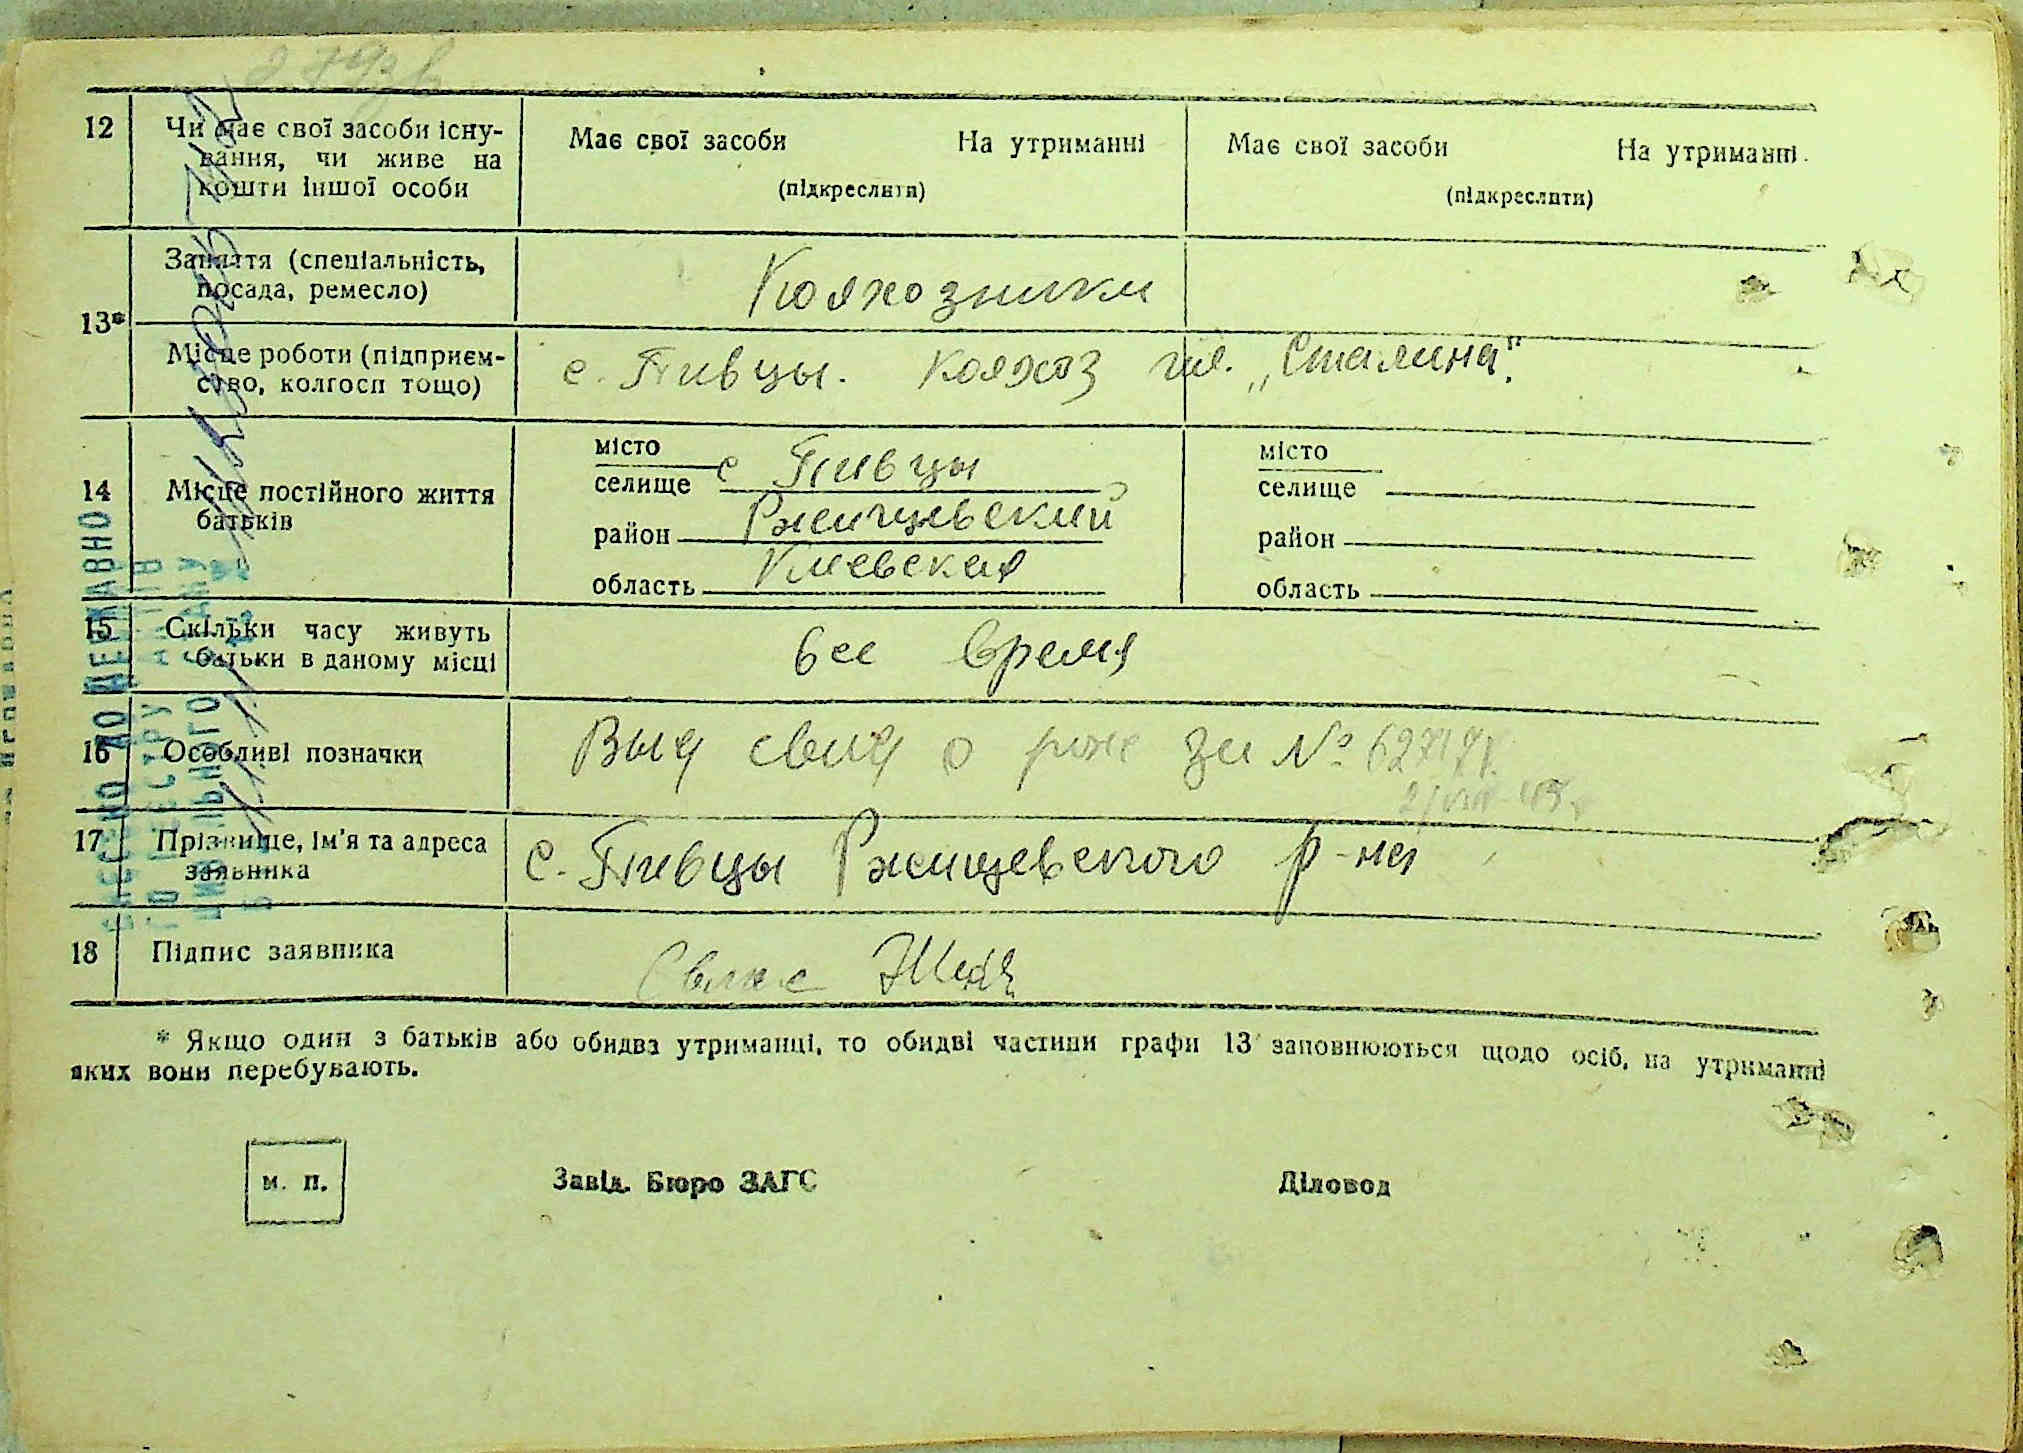 12 Чи має свої засоби існу-
вання, чи живе на
кошти іншої особи
Має свої засоби На утриманні
(підкреслити)
Має свої засоби На утриманні
(підкреслити)
13*
Заняття (спеціальність,
посада, ремесло)
Колхозники
Місце роботи (підприєм-
ство, колгосп тощо)
с. Пивцы. колхоз им. „Сталина".
14 Місце постійного життя
батьків
місто
селище с Пивцы
район Ржищевский
область Киевская
місто
селище
район
область
15 Скільки часу живуть
батьки в даному місці
все время
16 Особливі позначки
Выд свид о рож за №
17 Прізвище, ім'я та адреса
заявника
с. Пивцы Ржищевского р-на
18 Підпис заявника
* Якщо один з батьків або обидва утриманці, то обидві частини графи 13 заповнюються щодо осіб, на утриманні
яких вони перебувають.
м. п.
Завід. Бюро ЗАГС
Діловод
ВНЕСЕНО ДО ДЕРЖАВНО
ГО РЕЄСТРУ АКТІВ
ЦИВІЛЬНОГО СТАНУ